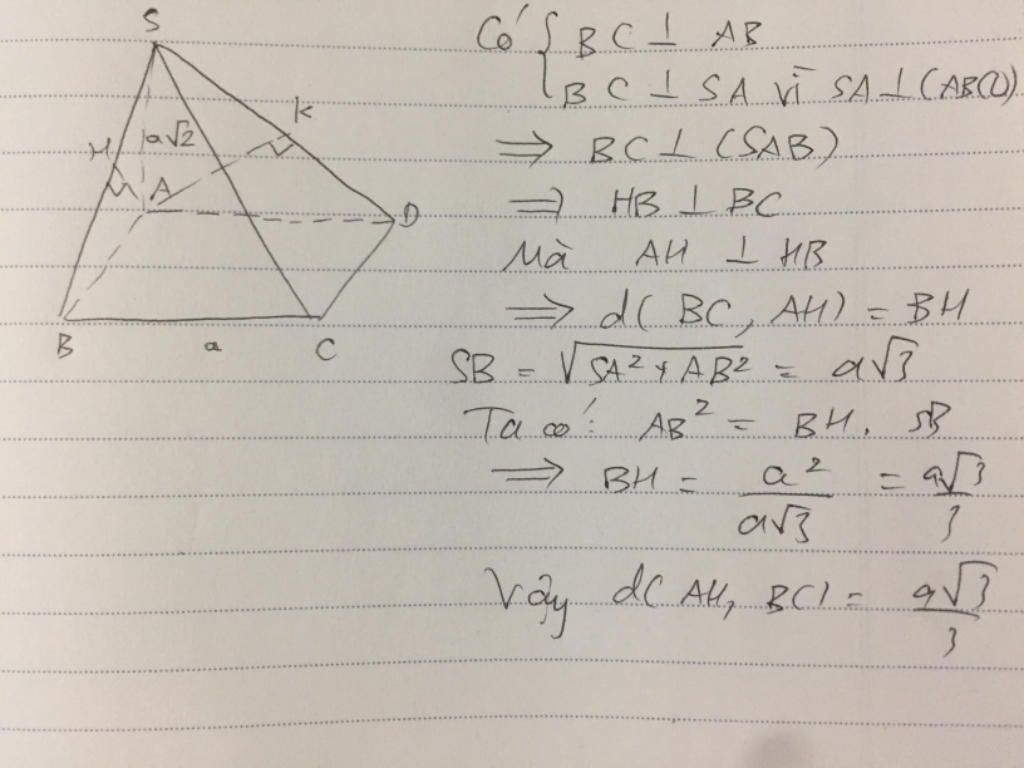 S
K
H
a√2
A
D
B
a
C
Có { BC ⊥ AB
BC ⊥ SA vì SA ⊥ (ABCD)
⇒ BC ⊥ (SAB)
⇒ HB ⊥ BC
Mà AH ⊥ HB
⇒ d( BC, AH) = BH
SB = √(SA² + AB²) = a√3
Ta có: AB² = BH. SB
⇒ BH = a²/a√3 = a√3/3
Vậy d( AH, BC) = a√3/3